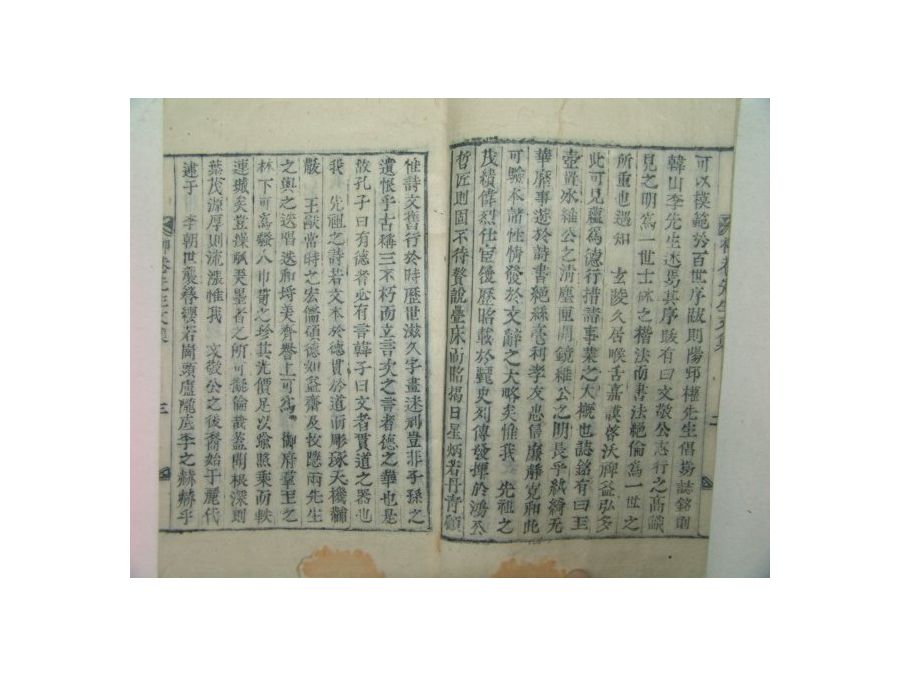 可以模範於百世序跋則陽邨權先生倡場誌銘則
韓山李先生述焉其序贊有曰文敬公志行之高識
見之明爲一世士林之楷法而書法絕倫爲一世之
所重也遇知 玄陵久居喉舌嘉謨啓沃裨益弘多
此可見蘊爲德行措諸事業之大槪也誌銘有曰玉
壺置冰維公之淸塵匣開鏡維公之明長乎紈綺无
華靡事遊於詩書絕絲毫利孝友忠信廉靜寬和此
可驗本諸性情發於文辭之大略矣惟我 先祖之
茂績偉烈仕宦後歷昭載於麗史列傳發揮於鴻公
哲匠則固不待贅說疊床而昭揭日星炳若丹靑顧
惟詩文舊行於時歷世滋久字畫迷刓豈非子孫之
遺恨乎古稱三不朽而立言次之言者德之華也是
故孔子曰有德者必有言韓子曰文者貫道之器也
我 先祖之詩若文本於德貫於道而彫琢天機黼
黻 王猷當時之宏儒碩德如益齋及牧隱兩先生
之與之迭唱迭和埒美齊譽上可爲 御府羣玉之
林下可爲驪八巾笥之珍其光價足以兪照乘而軼
連璣矣豈操觚弄墨者之所可擬倫哉蓋聞根深則
葉茂源厚則流漲惟我 文敬公之後裔始于麗代
逮于 李朝世襲簪纓若崗頭盧隴底李之赫赫乎
先生文集
二
先生文集
三